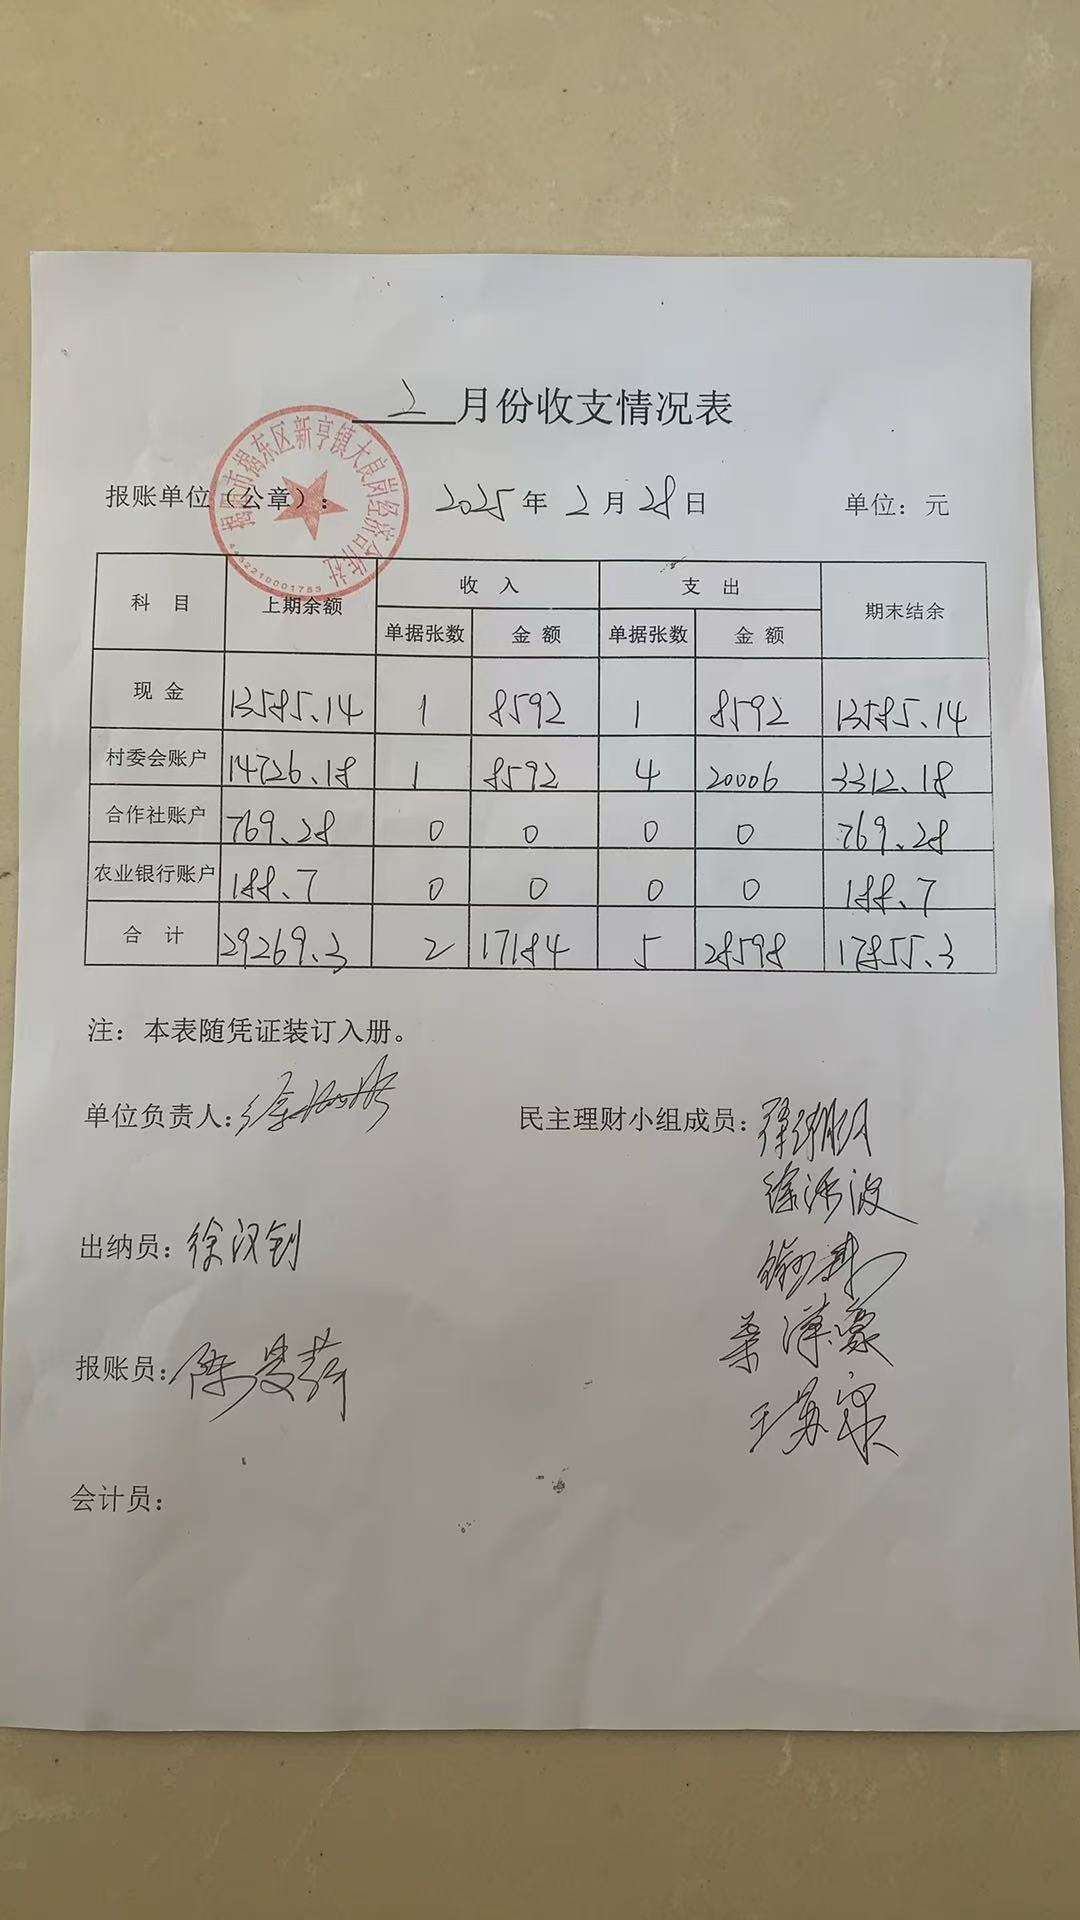 2月份收支情况表
揭阳市揭东区新亨镇大良岗经济合作社
4452210001783
报账单位（公章）： 2025年2月28日 单位：元
科 目 上期余额 收 入 支 出 期末结余
单据张数 金 额 单据张数 金 额
现 金 13585.14 1 8592 1 8592 13585.14
村委会账户 14726.18 1 8592 4 20006 3312.18
合作社账户 769.28 0 0 0 0 769.28
农业银行账户 188.7 0 0 0 0 188.7
合 计 29269.3 2 17184 5 28598 17855.3
注：本表随凭证装订入册。
单位负责人：徐
民主理财小组成员：徐
徐 波
出纳员：徐汉钊
桑泽豪
报账员：陈
王苏
会计员：